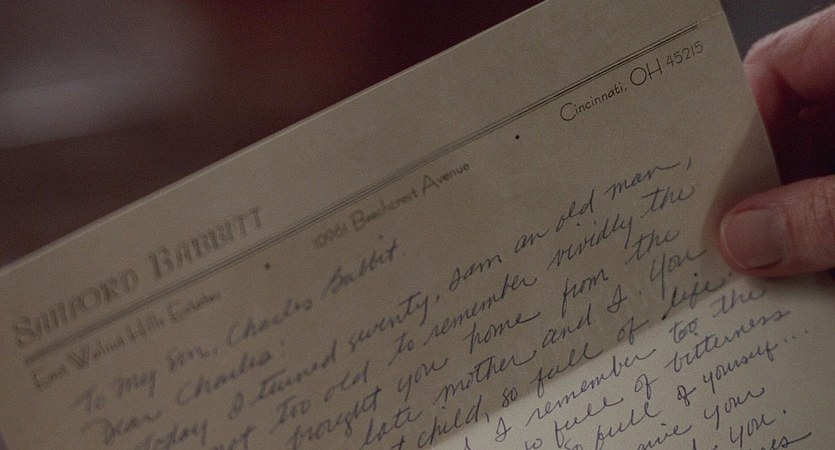 SANFORD BABBITT
East Walnut Hills Estates • 10961 Beechcrest Avenue • Cincinnati, OH 45215
To my son, Charles Babbit.
Dear Charles:
Today I turned seventy, I am an old man,
not too old to remember vividly the
brought you home from the
late mother and I. You
t child, so full of life.
d I remember too the
so full of bitterness
so full of yourself...
give your
d you.